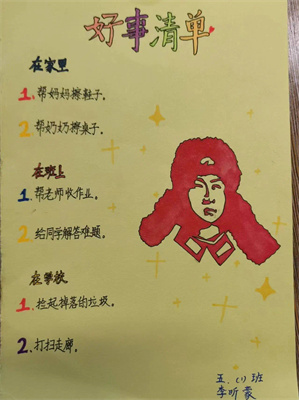 好事清单
在家里
1.帮妈妈擦鞋子。
2.帮奶奶擦桌子。
在班上
1.帮老师收作业。
2.给同学解答难题。
在学校
1.捡起掉落的垃圾。
2.打扫走廊。
五.(1)班
李昕蒙